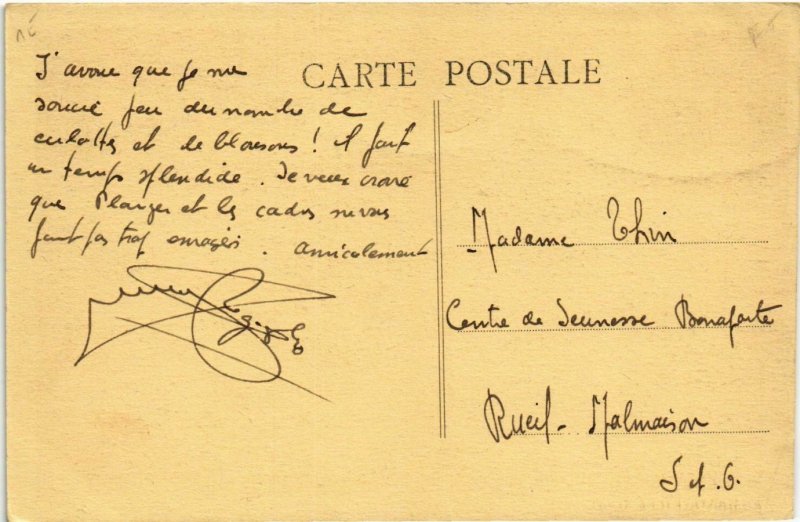 J'avoue que je me
soucie peu du nombre de
culottes et de blousons ! il fait
un temps splendide. Je veux croire
que et les cadres ne vous
font pas trop enrager. amicalement
CARTE POSTALE
Madame Thin
Centre de Jeunesse Bonaparte
Rueil-Malmaison
S et O.